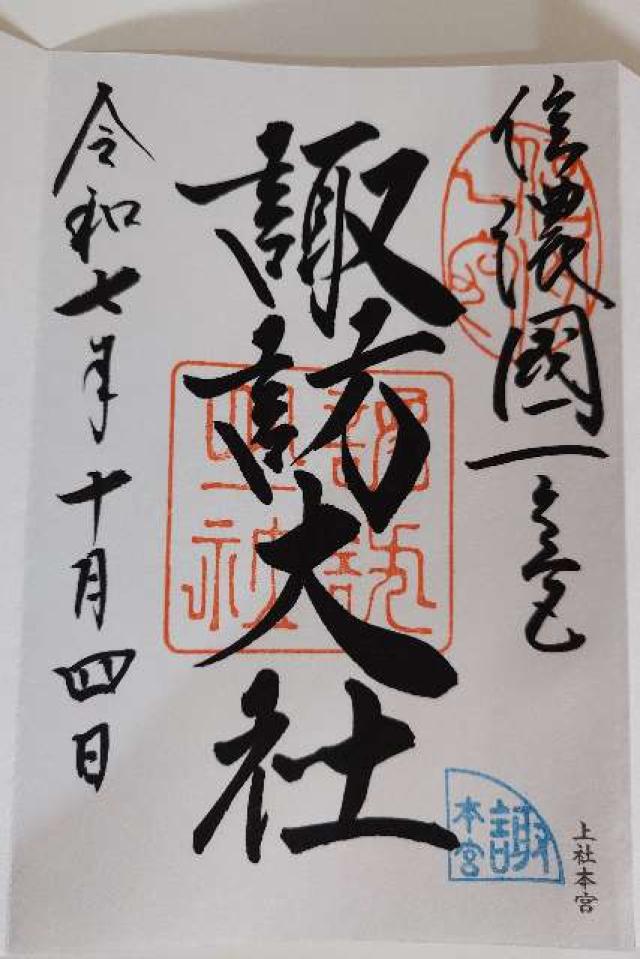 信濃國一之宮
諏訪大社
令和七年十月四日
諏
本宮
上社本宮